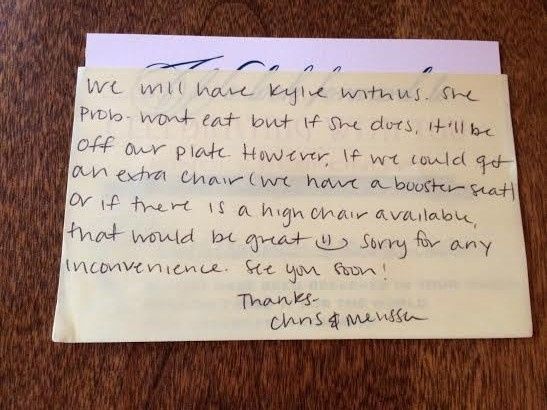 We will have Kylie with us. She
prob. wont eat but if she does, it'll be
off our plate. However, if we could get
an extra chair (we have a booster seat)
or if there is a high chair available,
that would be great :) Sorry for any
inconvenience. See you soon!
Thanks-
Chris & Melissa